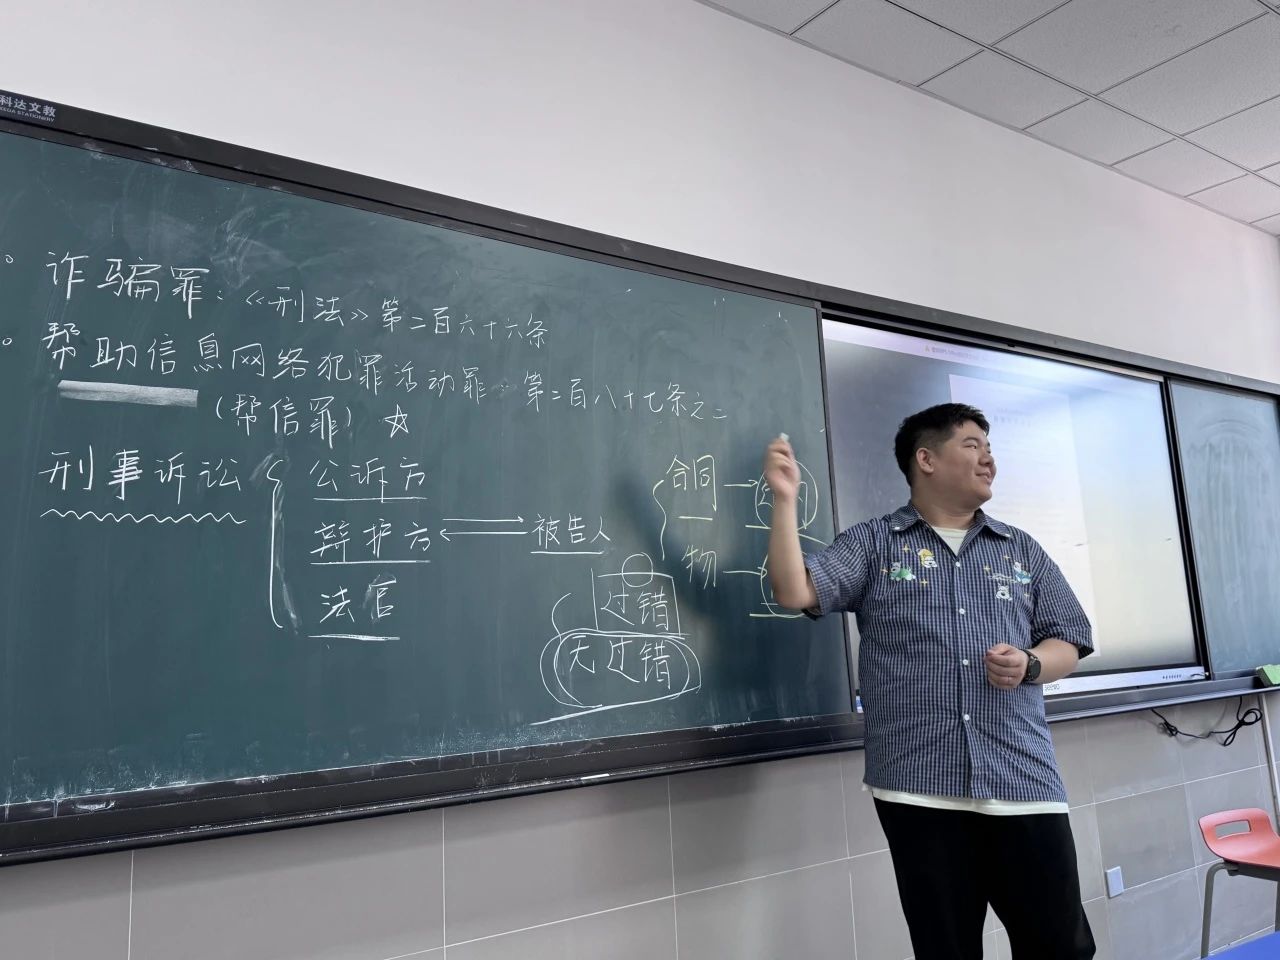 科达文教
KEDA STATIONERY
诈骗罪：《刑法》第二百六十六条
帮助信息网络犯罪活动罪：第二百八十七条之二
（帮信罪）☆
刑事诉讼
公诉方
辩护方
被告人
法官
合同
物
过错
无过错
seewo